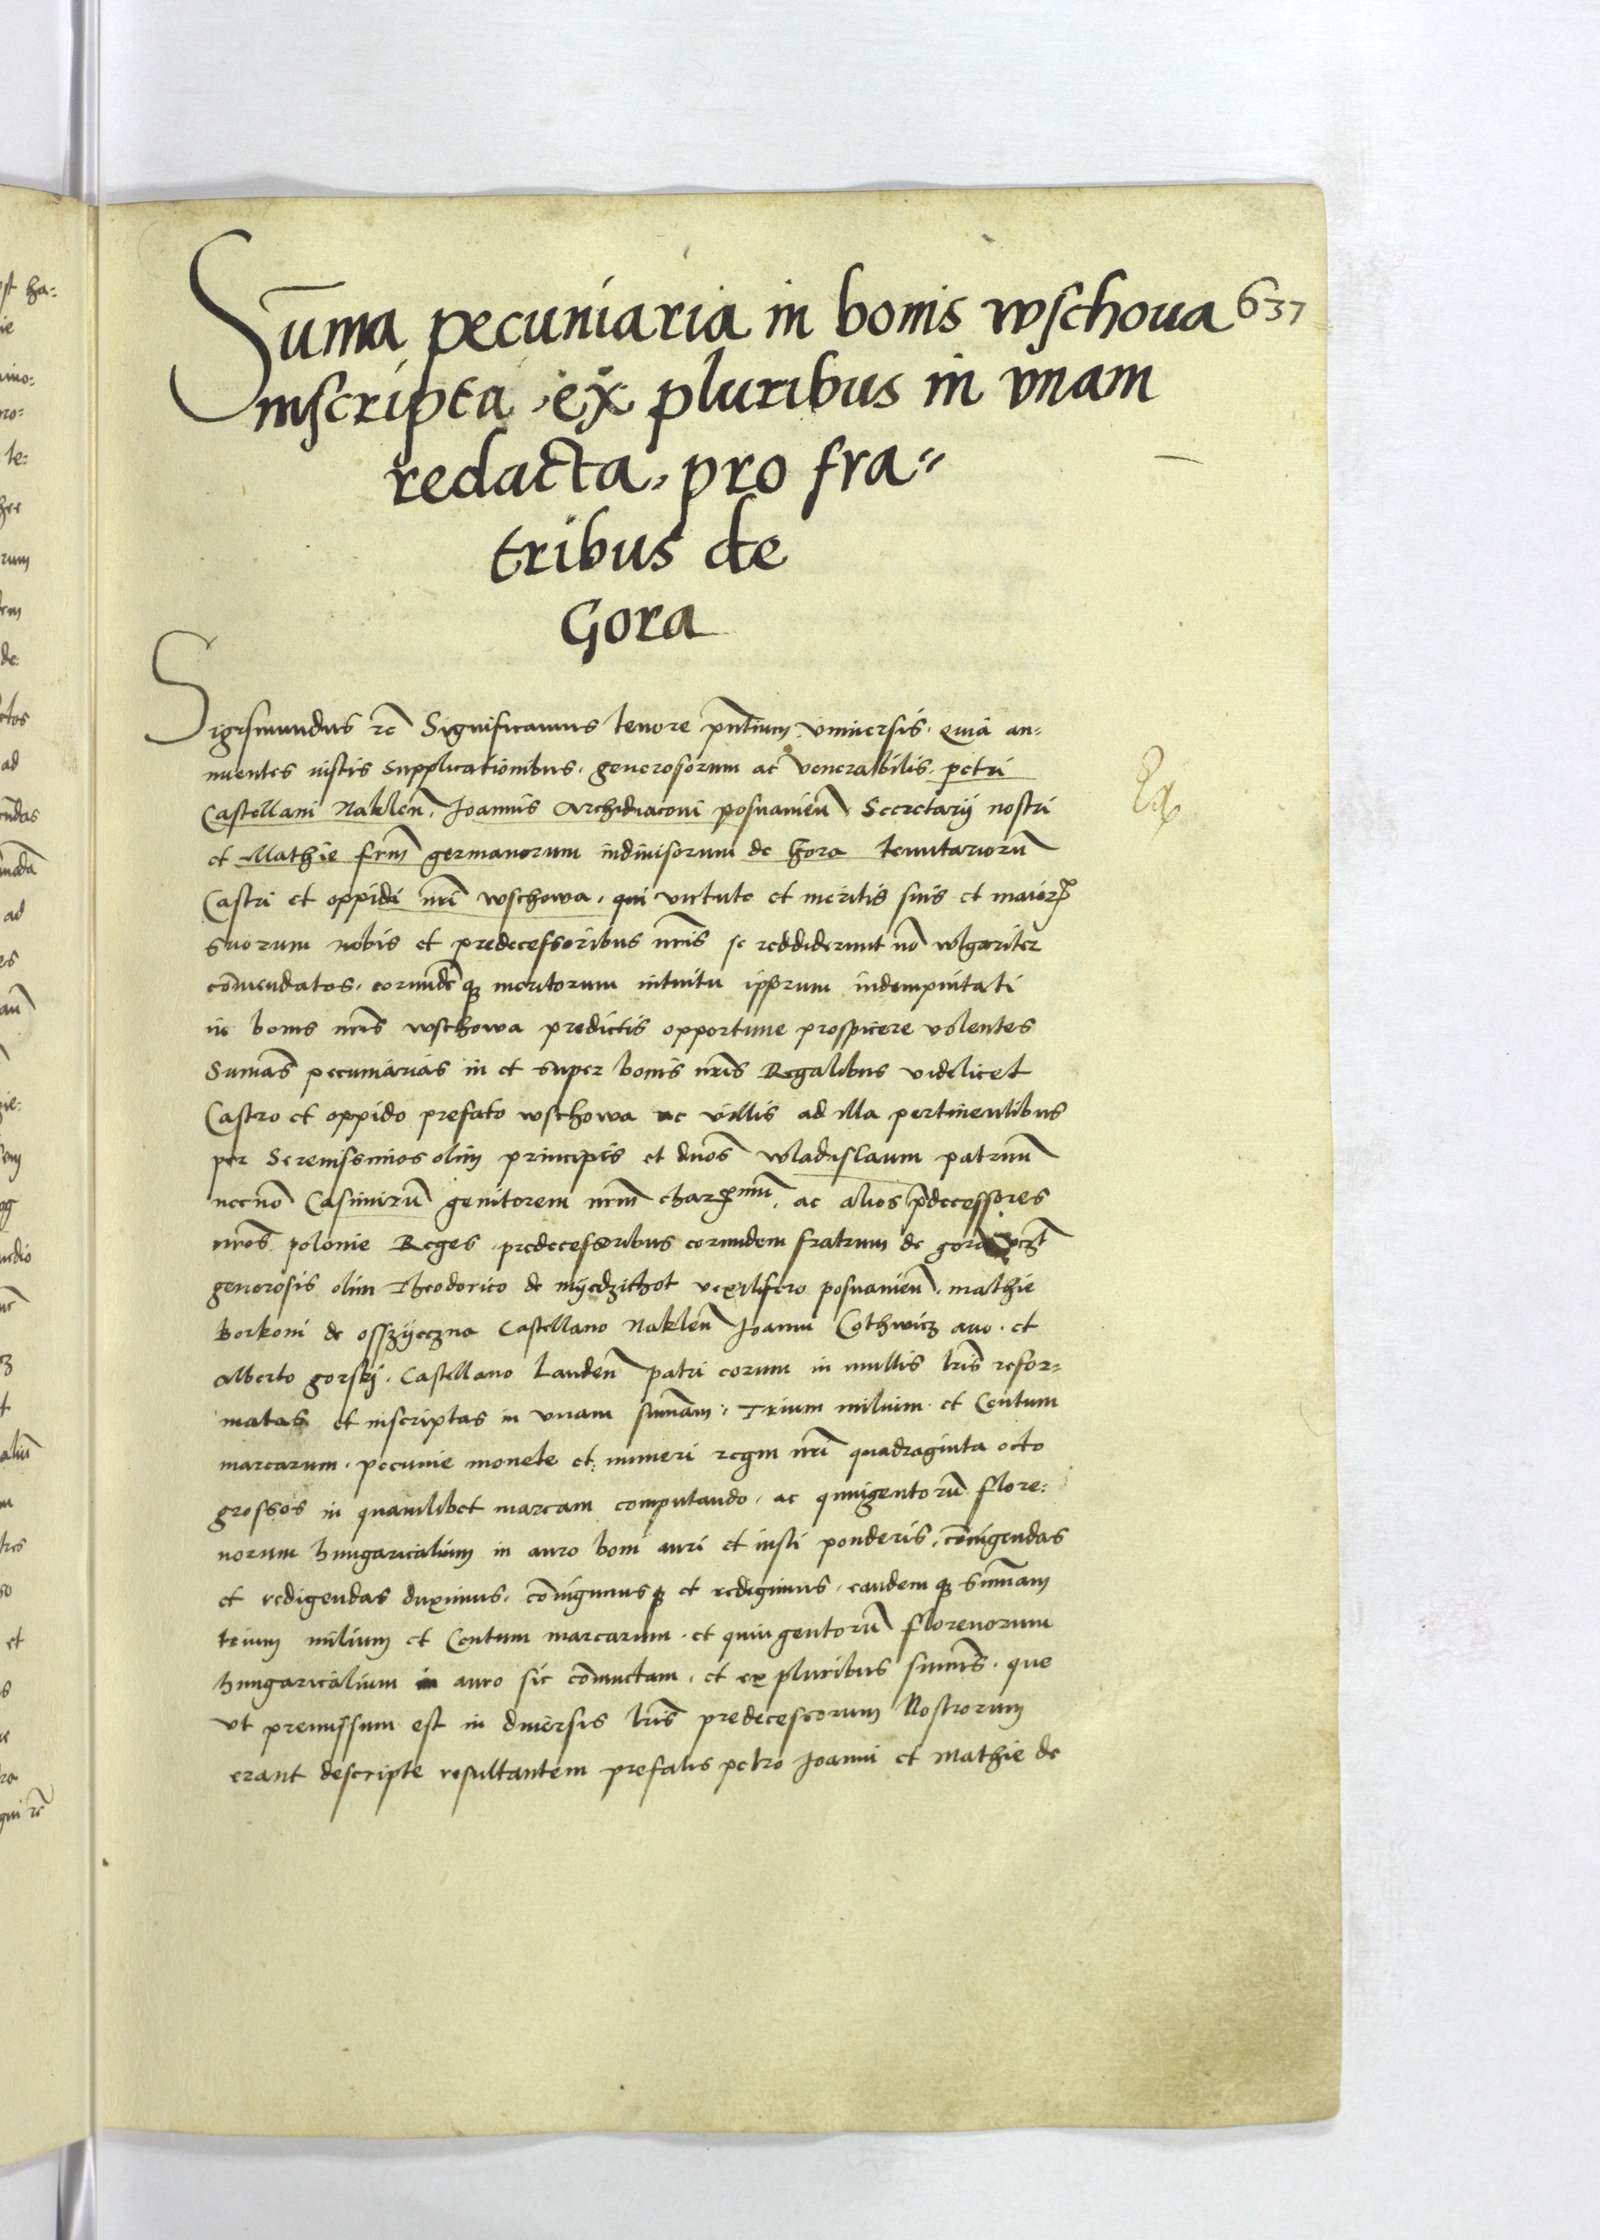 637
Suma pecuniaria in bonis wschoua
inscripta, ex pluribus in vnam
redacta, pro fra=
tribus de
Gora
Sigismundus rc Significamus tenore pntium vniuersis quia an-
nuentes iustis supplicationibus generosorum ac venerabilis petri
Castellani Naklen Joannis Archidiaconi posnanien Secretarij nostri
et Mathie frm germanorum indiuisorum de Gora tenutarioru
Castri et oppidi nri wschowa, qui virtute et meritis suis et maior
suorum nobis et predecessoribus nris se reddiderunt no wlgariter
comendatos, eorundeque meritorum intuitu ipsorum indempnitati
in bonis nris wschowa predictis opportune prospicere volentes
Sumas pecuniarias in et super bonis nris Regalibus videlicet
Castro et oppido prefato wschowa ac villis ad illa pertinentibus
per Serenissimos olim principes et dnos wladislaum patruu
necno Casimiru genitorem nrm charmu, ac alios pdecessores
nros polonie Reges predecessoribus eorundem fratrum de gora
generosis olim Theodorico de myedzichot vexilifero posnanien, mathie
Borkoni de osszyeczna Castellano Naklen Joanni Cothwicz auo et
Alberto gorskj Castellano Landen patri eorum in multis lris refor-
matas et inscriptas in vnam sumam Trium milium et Centum
marcarum pecunie monete et numeri regni nri quadraginta octo
grossos in quamlibet marcam computando, ac quingentoru flore:
norum hungaricalium in auro boni auri et iusti ponderis, coniugendas
et redigendas duximus, coniugimusque et redigimus, eandemque sumam
trium milium et Centum marcarum et quingentoru florenorum
hungaricalium in auro sic coniuctam, et ex pluribus sumis que
vt premissum est in diuersis lris predecessorum Nostrorum
erant descripte resultantem prefatis petro Joanni et Mathie de